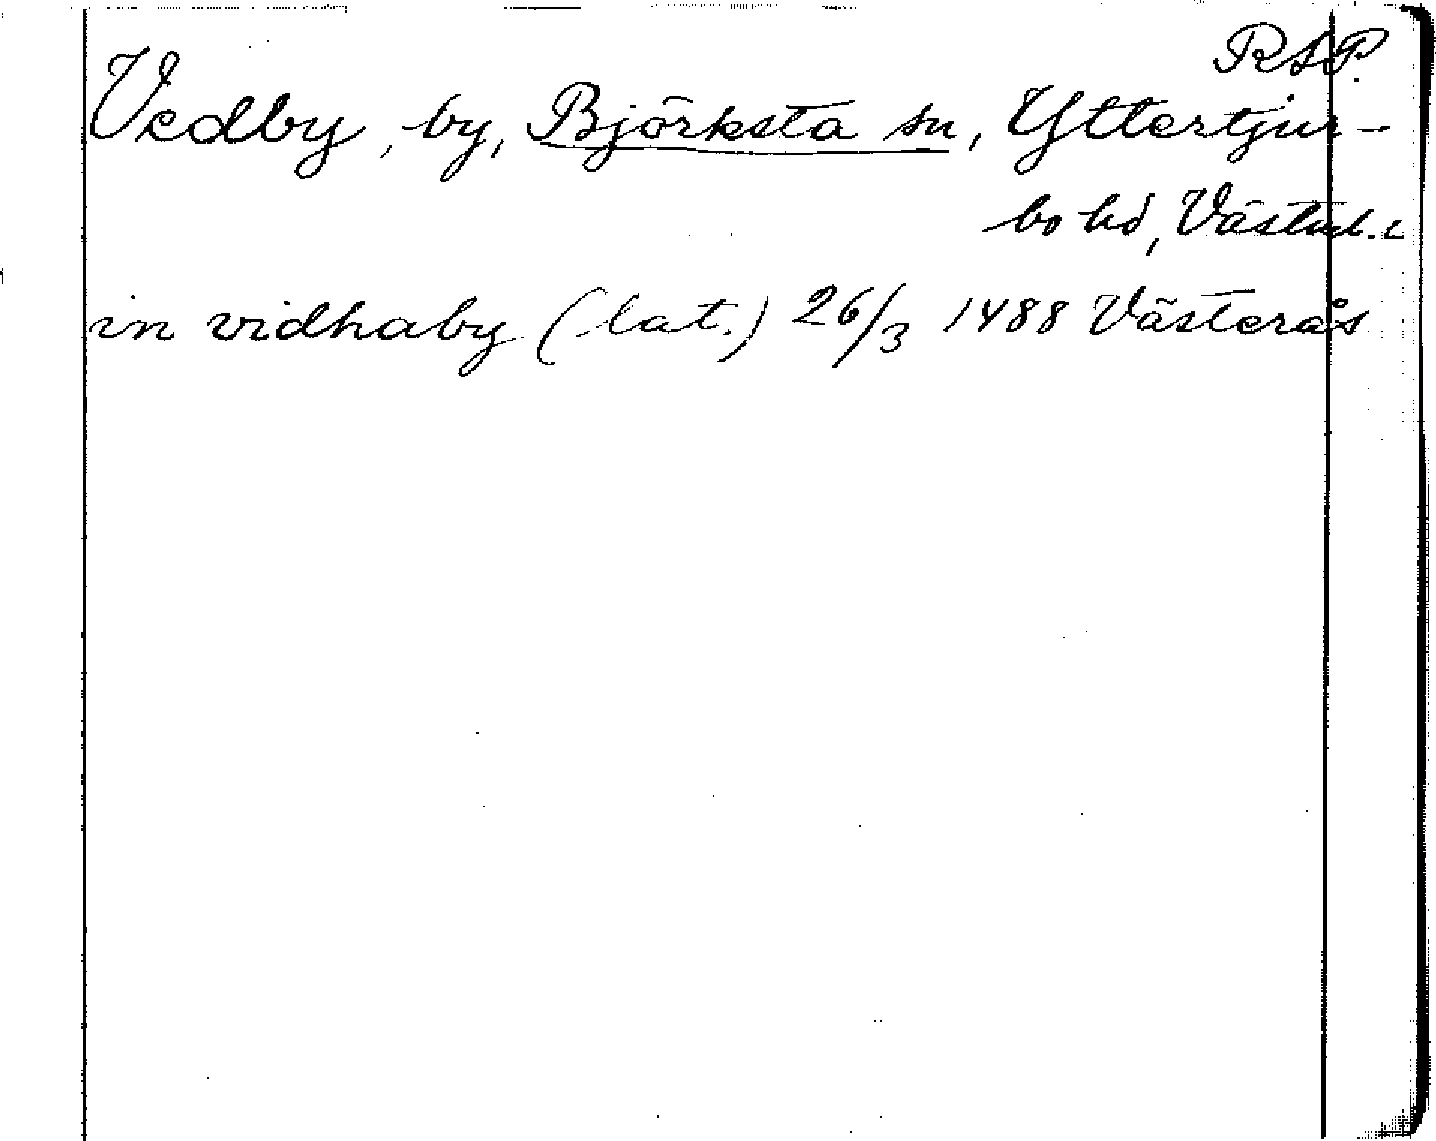 RAP.
Vedby, by, Björksta sn, Yttertjur-
bo hd, Västml. l
in vidhaby (lat.) 26/3 1488 Västerås